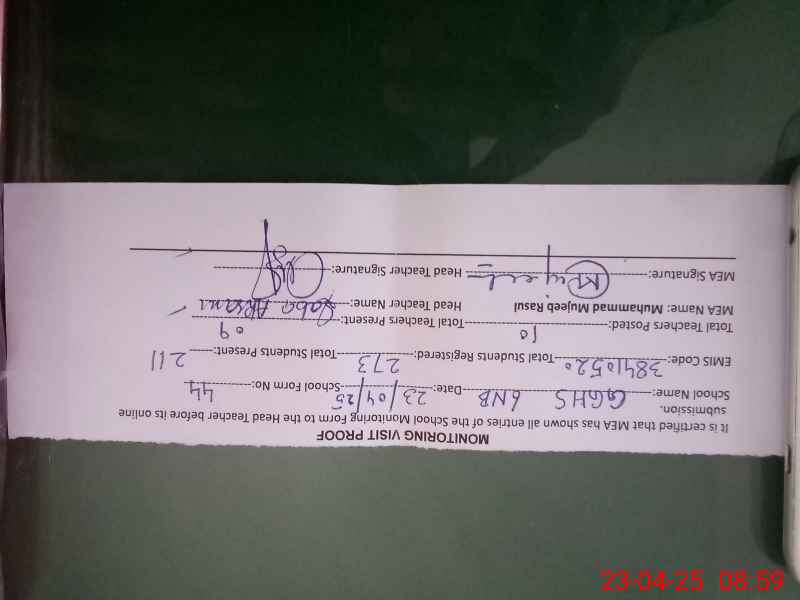 MONITORING VISIT PROOF
It is certified that MEA has shown all entries of the School Monitoring Form to the Head Teacher before its online
submission.
School Name: GGHS 6NB Date: 23/04/25 School Form No: 44
EMIS Code: 38410520 Total Students Registered: 273 Total Students Present: 211
Total Teachers Posted: 10 Total Teachers Present: 09
MEA Name: Muhammad Mujeeb Rasul Head Teacher Name: Saba Ahsan
MEA Signature: Head Teacher Signature:
23-04-25 08:59